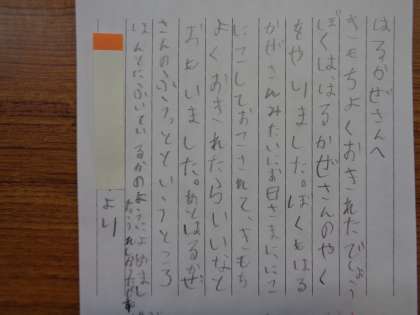 はるかぜさんへ
きもちよくおきれたでしょう
ぼくは、はるかぜさんのやく
をやりました。ぼくもはる
かぜさんみたいにお日さまににこ
にこしておこされて、きもち
よくおきれたらいいなと
おもいました。あとはるかぜ
さんのふうっとというところ
ほんとにふいているかのようによめまし
より